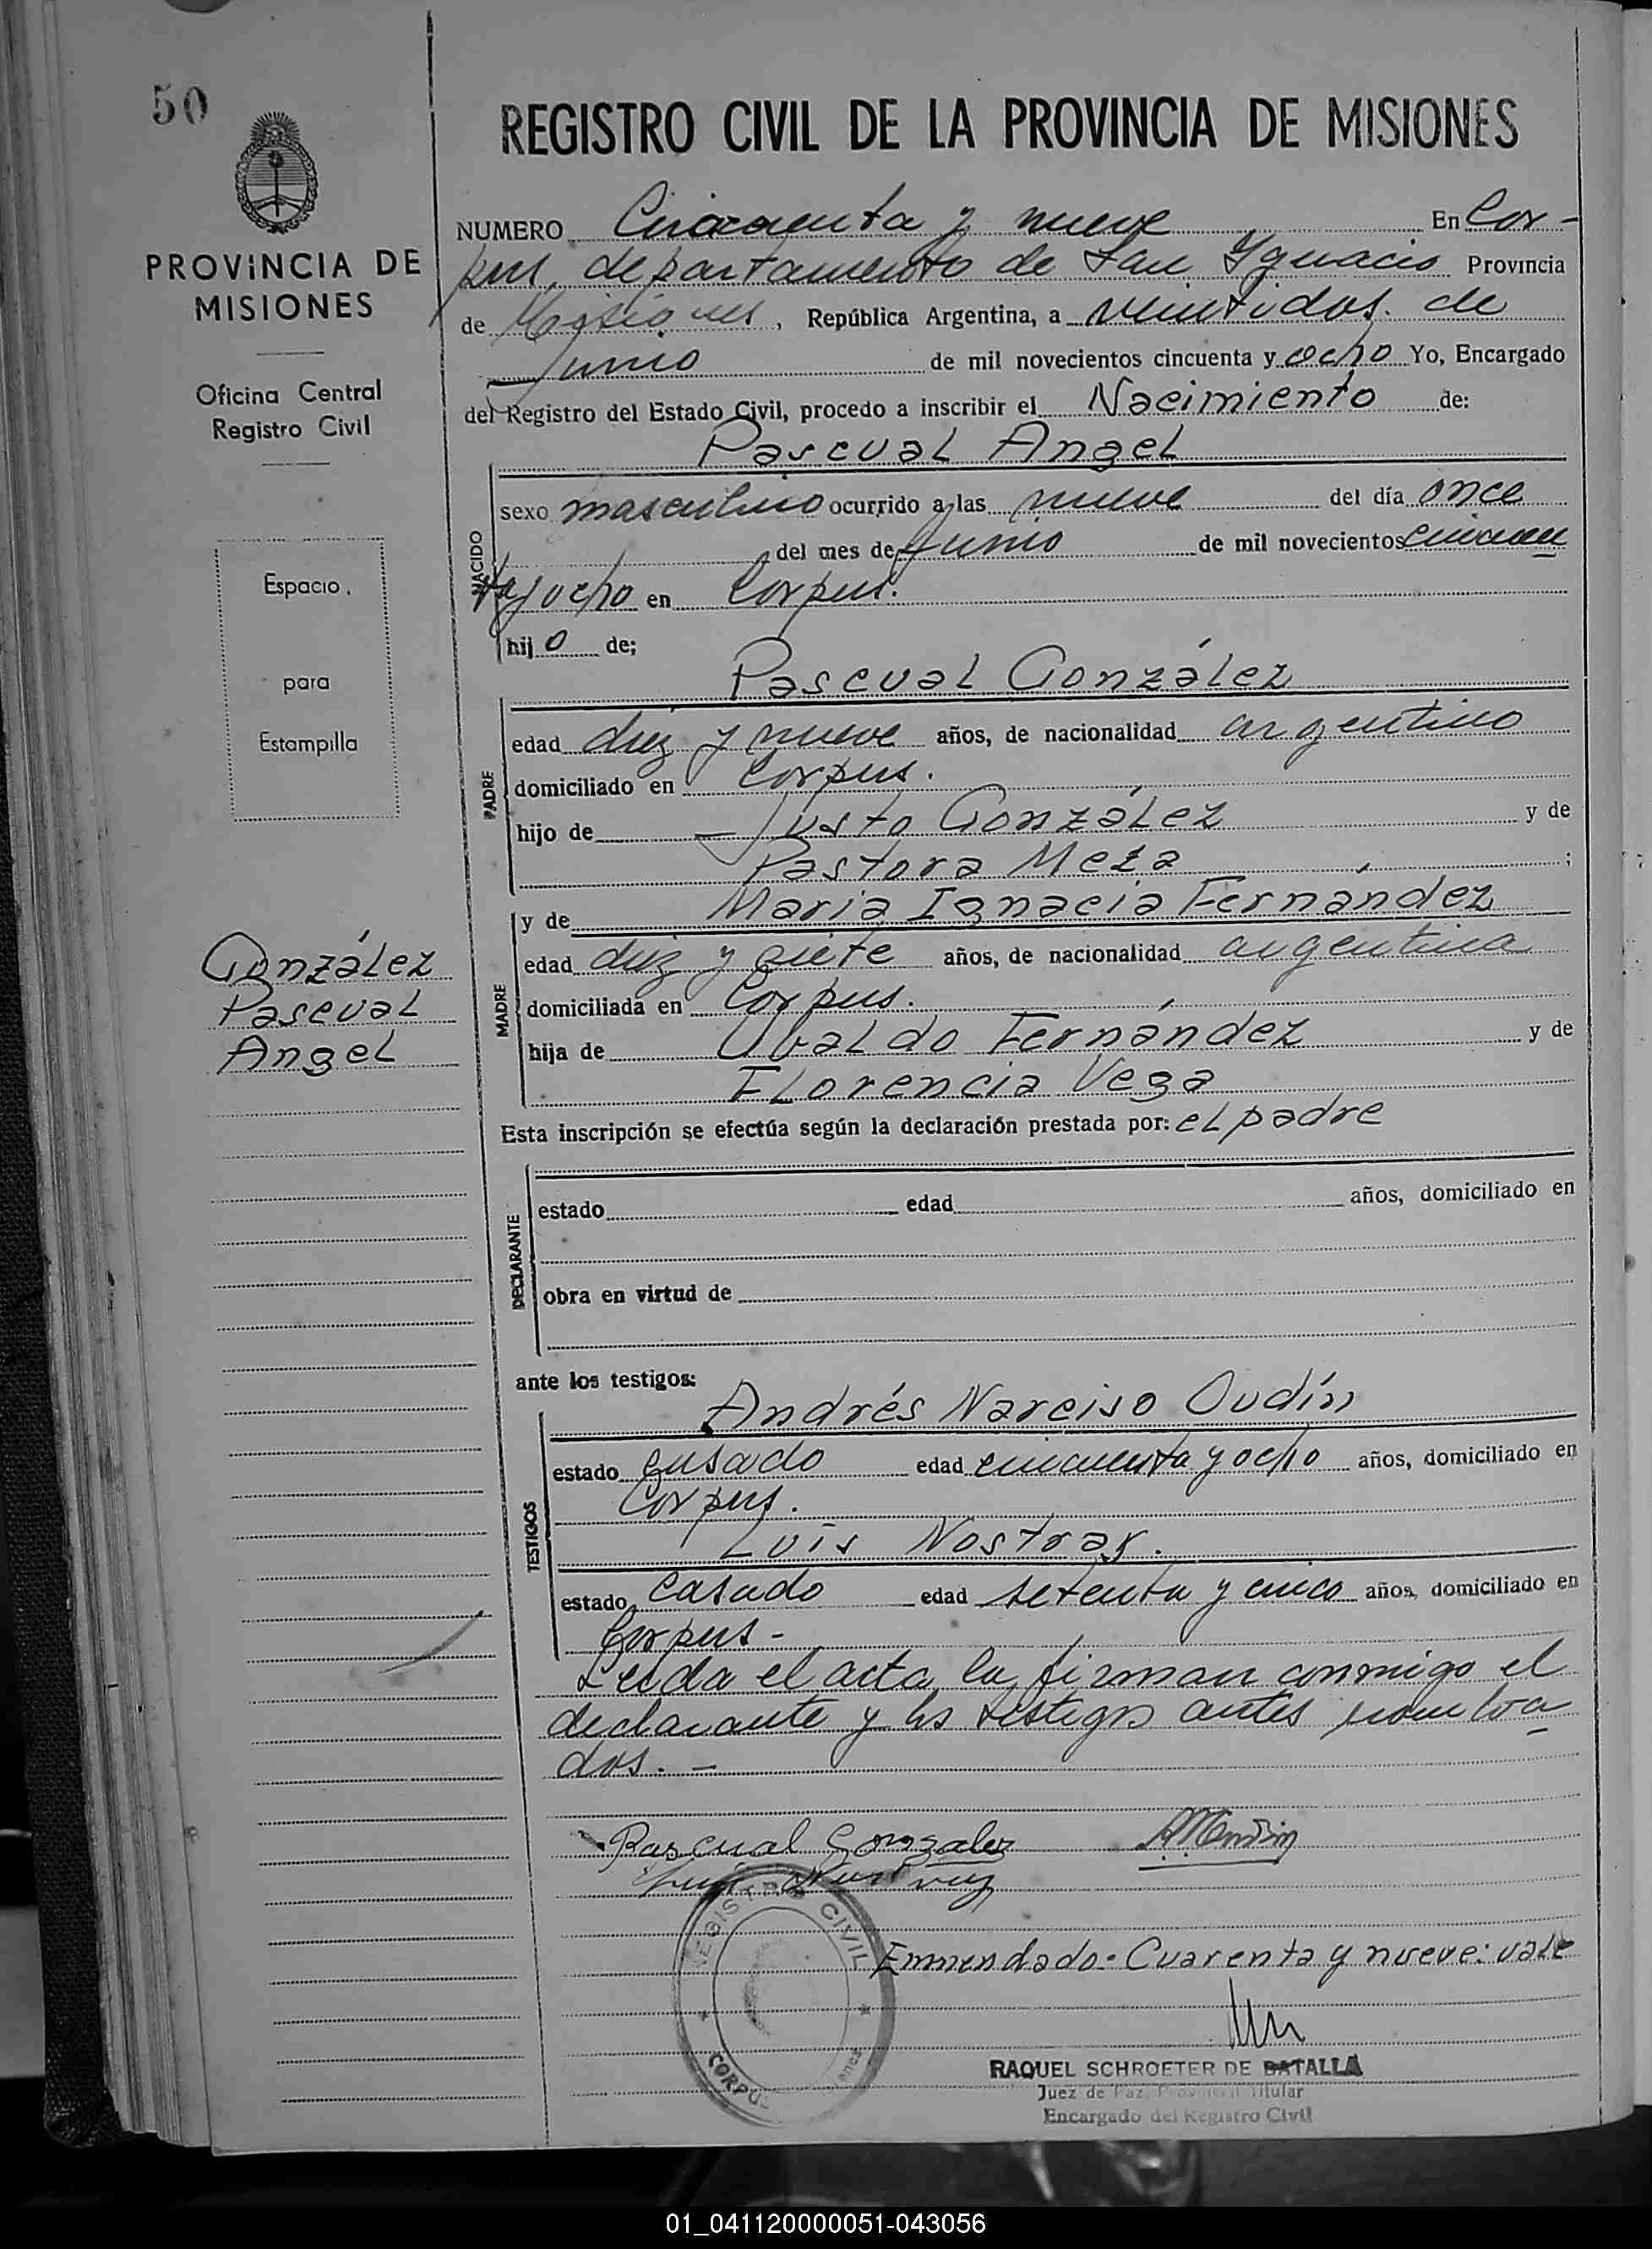 50
REGISTRO CIVIL DE LA PROVINCIA DE MISIONES
PROVINCIA DE
MISIONES
Oficina Central
Registro Civil
Espacio
para
Estampilla
González
Pascual
Angel
NUMERO y nueve En Cor-
pus, departamento de San Ygnacio Provincia
de Misiones, República Argentina, a veintidos de
Junio de mil novecientos cincuenta y ocho Yo, Encargado
del Registro del Estado Civil, procedo a inscribir el Nacimiento de:
Pascual Angel
NACIDO
sexo masculino ocurrido a las nueve del día once
del mes de Junio de mil novecientos cincuen
ta y ocho en Corpus.
hijo de;
PADRE
Pascual González
edad diez y nueve años, de nacionalidad argentino
domiciliado en Corpus.
hijo de Justo González y de
Pastora Meza ;
MADRE
y de María Ignacia Fernández
edad diez y siete años, de nacionalidad argentina
domiciliada en Corpus.
hija de Ubaldo Fernández y de
Florencia Vega
Esta inscripción se efectúa según la declaración prestada por: el padre
DECLARANTE
estado edad años, domiciliado en
obra en virtud de
ante los testigos:
TESTIGOS
Andrés Narciso Oudín
estado casado edad cincuenta y ocho años, domiciliado en
Corpus.
Luis Nostras.
estado casado edad setenta y cinco años, domiciliado en
Corpus-
Leida el acta, la firman conmigo el
declarante y los testigos antes nombra
dos. -
Pascual Gonzalez
REGISTRO CIVIL
CORPUS
Enmendado: Cuarenta y nueve: vale
RAQUEL SCHROETER DE BATALLA
Juez de Paz Provincial Titular
Encargado del Registro Civil
01_041120000051-043056